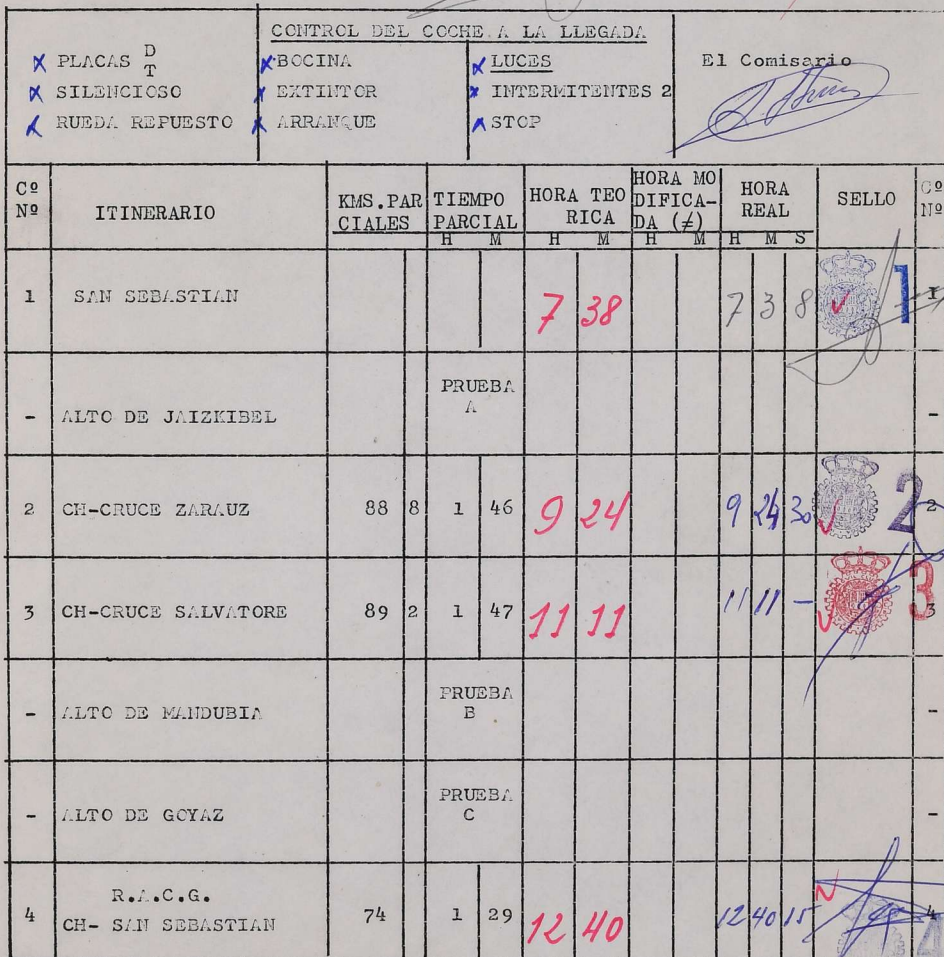 CONTROL DEL COCHE A LA LLEGADA
x PLACAS D T
x SILENCIOSO
x RUEDA REPUESTO
x BOCINA
x EXTINTOR
x ARRANQUE
x LUCES
x INTERMITENTES 2
x STOP
El Comisario
Cº Nº ITINERARIO KMS.PAR CIALES TIEMPO PARCIAL HORA TEO RICA HORA MO DIFICA- DA (≠) HORA REAL SELLO Cº Nº
H M H M H M H M S
1 SAN SEBASTIAN 7 38 7 3 8 1 1
- ALTO DE JAIZKIBEL PRUEBA A -
2 CH-CRUCE ZARAUZ 88 8 1 46 9 24 9 24 30 2 2
3 CH-CRUCE SALVATORE 89 2 1 47 11 11 11 11 - 3 3
- ALTO DE MANDUBIA PRUEBA B -
- ALTO DE GOYAZ PRUEBA C -
R.A.C.G.
4 CH- SAN SEBASTIAN 74 1 29 12 40 12 40 15 4 4